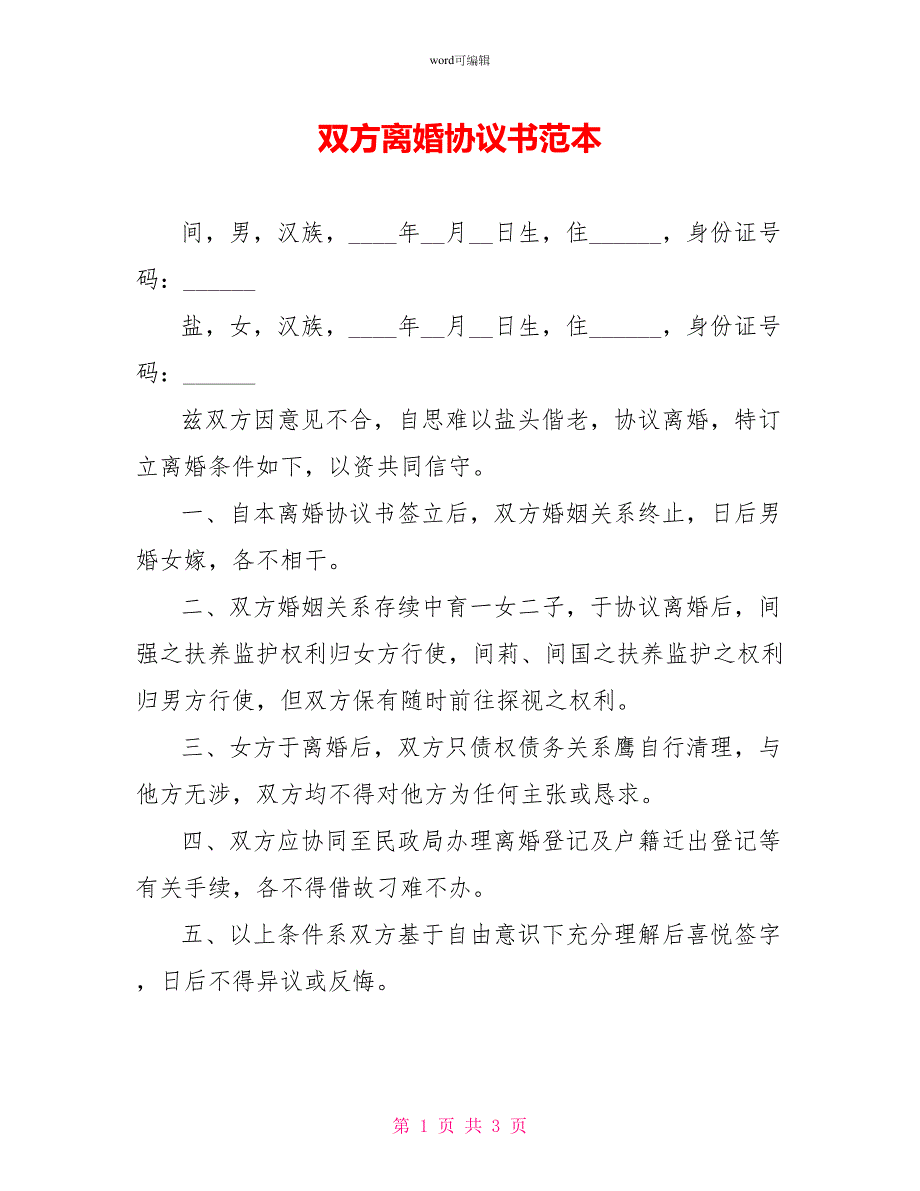 word可编辑
双方离婚协议书范本
间，男，汉族，____年__月__日生，住______，身份证号
码：______
盐，女，汉族，____年__月__日生，住______，身份证号
码：______
兹双方因意见不合，自思难以盐头偕老，协议离婚，特订
立离婚条件如下，以资共同信守。
一、自本离婚协议书签立后，双方婚姻关系终止，日后男
婚女嫁，各不相干。
二、双方婚姻关系存续中育一女二子，于协议离婚后，间
强之扶养监护权利归女方行使，间莉、间国之扶养监护之权利
归男方行使，但双方保有随时前往探视之权利。
三、女方于离婚后，双方只债权债务关系鹰自行清理，与
他方无涉，双方均不得对他方为任何主张或恳求。
四、双方应协同至民政局办理离婚登记及户籍迁出登记等
有关手续，各不得借故刁难不办。
五、以上条件系双方基于自由意识下充分理解后喜悦签字
，日后不得异议或反悔。
第 1 页 共 3 页